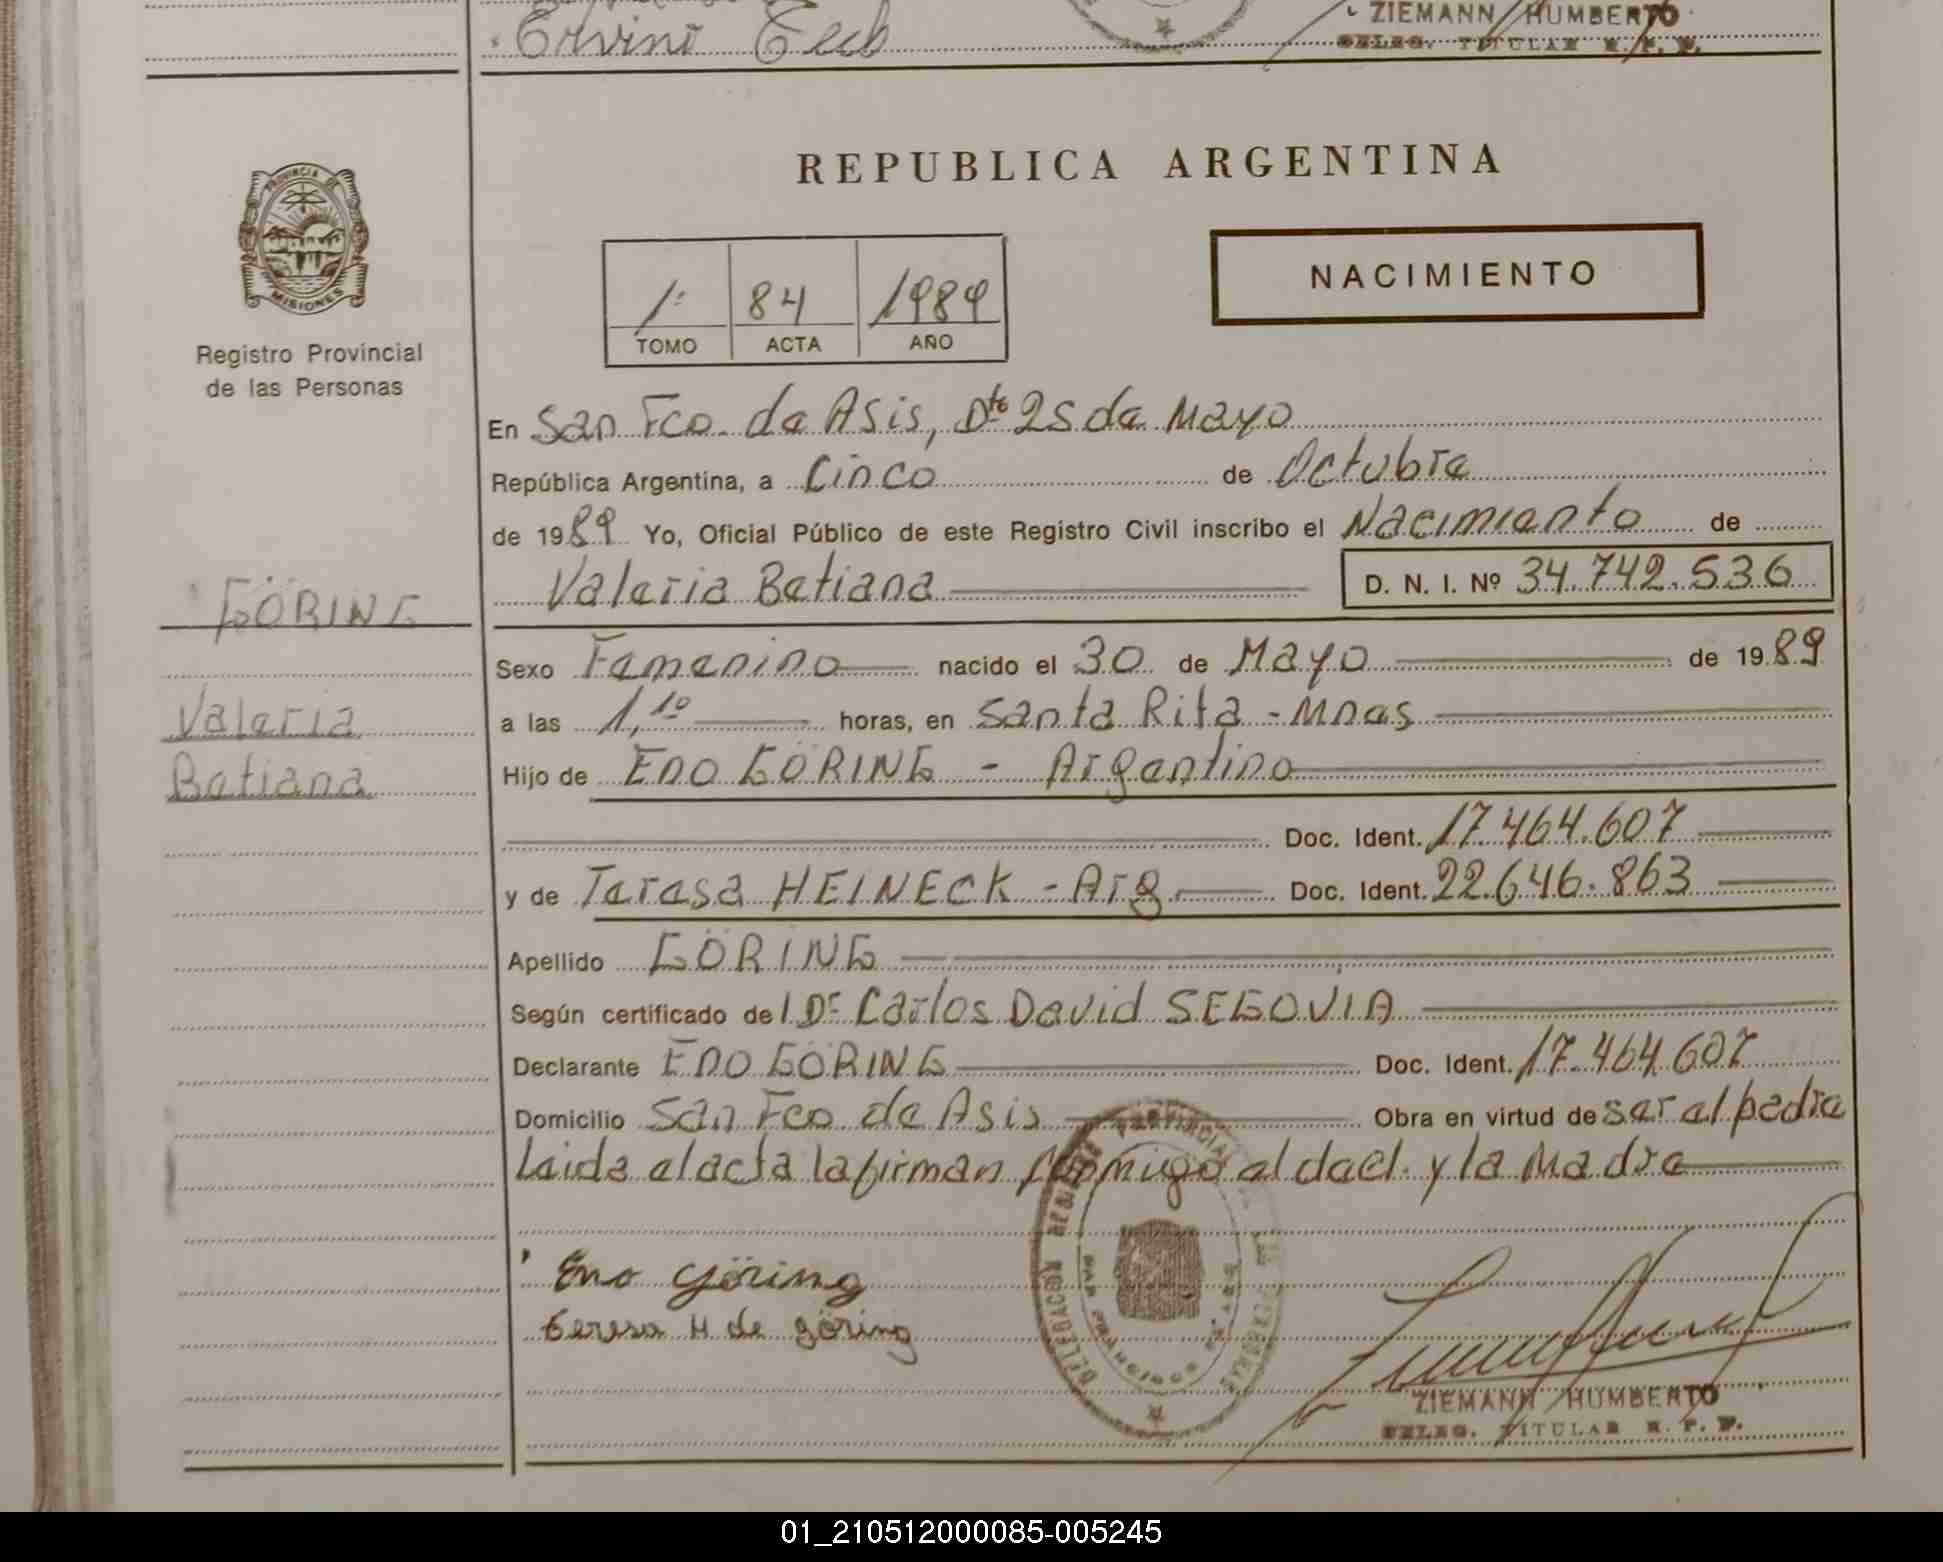 Ervino Eeeb
ZIEMANN HUMBERTO
DELEG. TITULAR R. P. P.
REPUBLICA ARGENTINA
PROVINCIA DE
MISIONES
Registro Provincial
de las Personas
1º 84 1989
TOMO ACTA AÑO
NACIMIENTO
En San Fco. de Asis, Dto 25 de Mayo
República Argentina, a Cinco de Octubre
de 1989 Yo, Oficial Público de este Registro Civil inscribo el Nacimiento de
Valeria Betiana D. N. I. Nº 34.742.536
GÖRING
Valeria
Betiana
Sexo Femenino nacido el 30 de Mayo de 1989
a las 1,10 horas, en Santa Rita - Mnes
Hijo de Eno GÖRING - Argentino
Doc. Ident. 17.464.607
y de Teresa HEINECK - Arg. Doc. Ident. 22.646.863
Apellido GÖRING
Según certificado del Dr Carlos David SEGOVIA
Declarante ENO GÖRING Doc. Ident. 17.464.607
Domicilio San Fco de Asis Obra en virtud de ser el padre
Leida el acta la firman conmigo el decl. y la Madre
Eno Göring
teresa H de göring
ZIEMANN HUMBERTO
DELEG. TITULAR R. P. P.
01_210512000085-005245